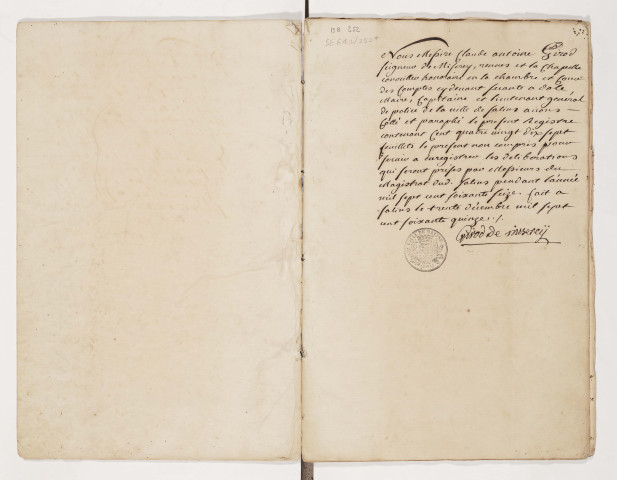 BB 252
Nous Messire Claude antoine Girod
seigneur de Miserey, rennes et la Chapelle
conseiller honoraire en la chambre et Cour
des Comptes cy devant seante a dole,
Maire, Capitaine et lieutenant general
de police de la ville de salins avons
Cotté et paraphé le present Registre
contenant Cent quatre vingt dix sept
feuillets le present non compris pour
servir a enregistrer les deliberations
qui seront prises par Messieurs du
Magistrat dud. salins pendant l'année
mil sept cent soixante seize. fait a
salins le trente decembre mil sept
cent soixante quinze ./.
Girod de miserey